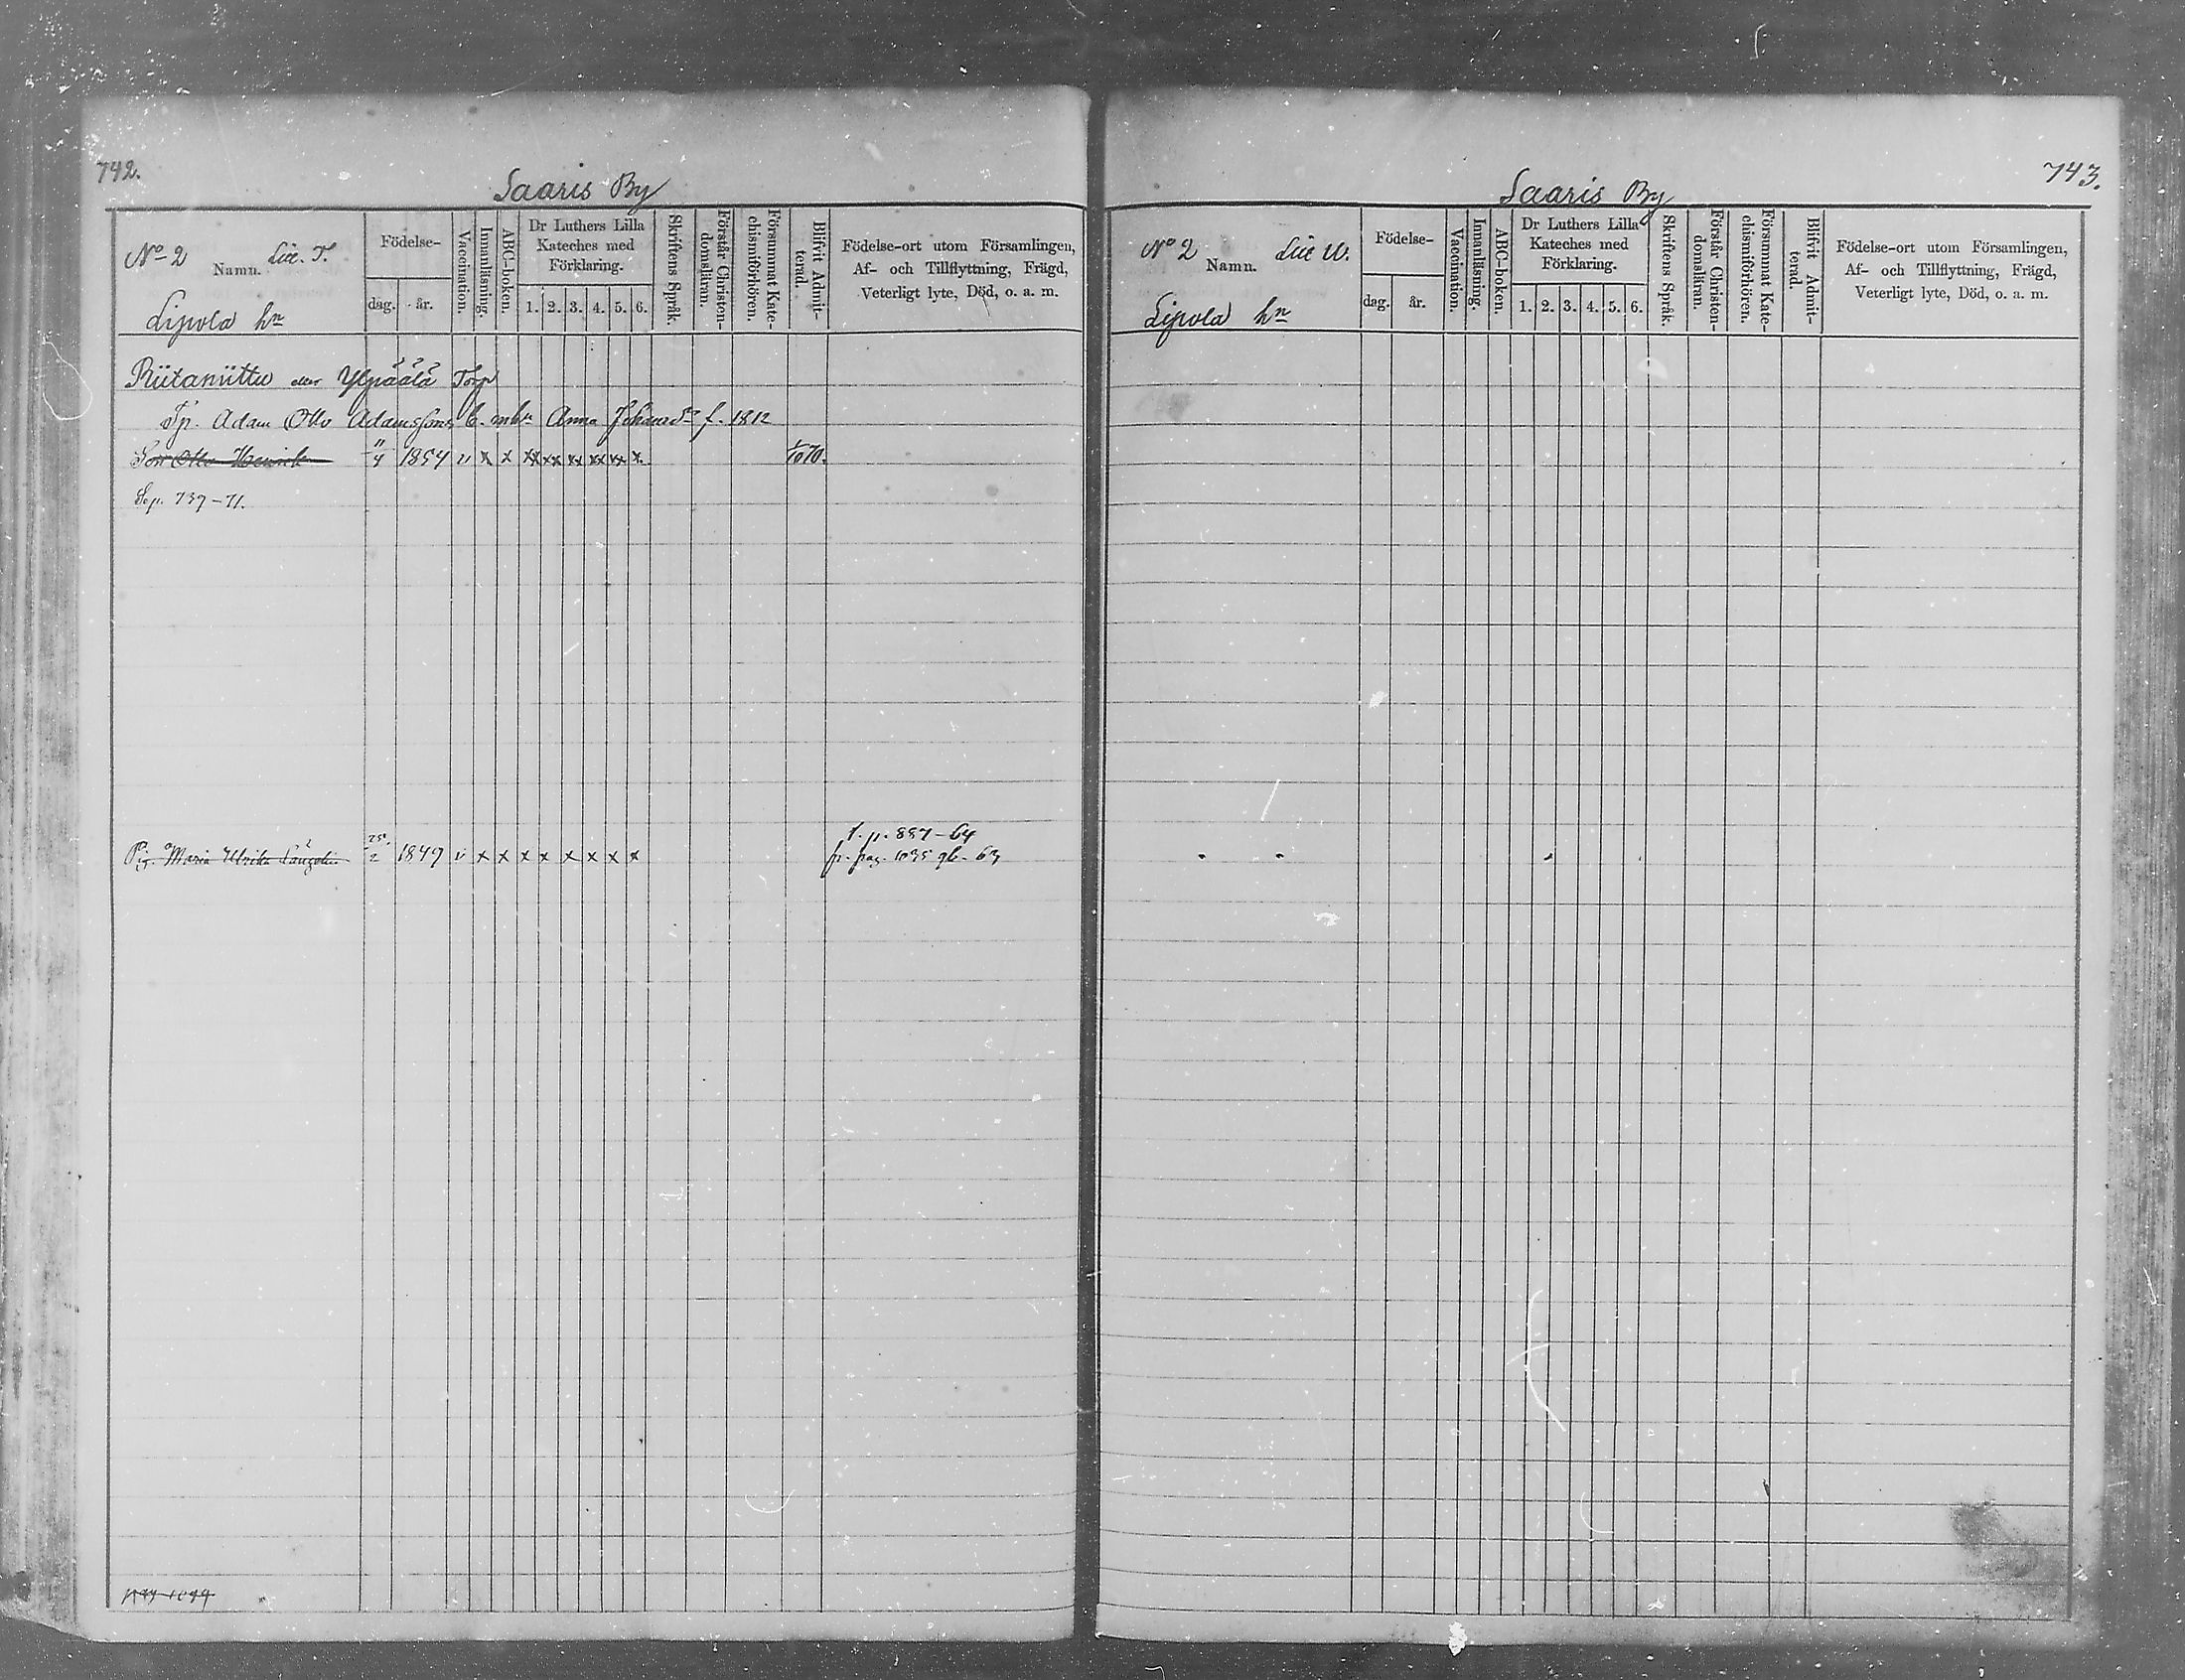 742.
Saaris By
No 2 Namn. Litt. T.
Lipola hn
Födelse-
dag. år.
Vaccination.
Innanläsning.
ABC-boken.
Dr Luthers Lilla
Kateches med
Förklaring.
1. 2. 3. 4. 5. 6.
Skriftens Språk.
Förstår Christen-
domsläran.
Försummat Kate-
chismiförhören.
Blifvit Admit-
terad.
Födelse-ort utom Församlingen,
Af- och Tillflyttning, Frägd,
Veterligt lyte, Död, o. a. m.
Riitaniittu eller Ylpäälä Torp
Tp. Adam Otto Adamsson E. mhu Anna Johansdr f. 1812
Son Otto Henrik 11/4 1854 v x x xx xx xx xx xx x 1/10 70.
Sep. 737-71.
t. p. 887-64
Pig. Maria Ulrika 25/2 1849 v x x x x x x x x fr. pag. 1035 gb. 63
743.
Saaris By
No 2 Namn. Litt U.
Lipola hn
Födelse-
dag. år.
Vaccination.
Innanläsning.
ABC-boken.
Dr Luthers Lilla
Kateches med
Förklaring.
1. 2. 3. 4. 5. 6.
Skriftens Språk.
Förstår Christen-
domsläran.
Försummat Kate-
chismiförhören.
Blifvit Admit-
terad.
Födelse-ort utom Församlingen,
Af- och Tillflyttning, Frägd,
Veterligt lyte, Död, o. a. m.